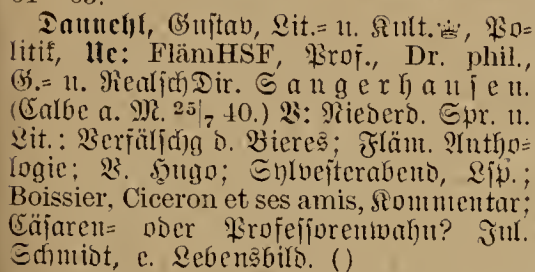 Dannehl, Gustav, Lit.= u. Kult. Po=
litik, Ue: FlämHSF, Prof., Dr. phil.,
G.= u. RealschDir. Sangerhausen.
(Calbe a. M. 25/7 40.) V: Niederd. Spr. u.
Lit.: Verfälschg d. Bieres; Fläm. Antho=
logie; V. Hugo; Sylvesterabend, Lsp.;
Boissier, Ciceron et ses amis, Kommentar;
Cäsaren= oder Professorenwahn? Jul.
Schmidt, e. Lebensbild. ()